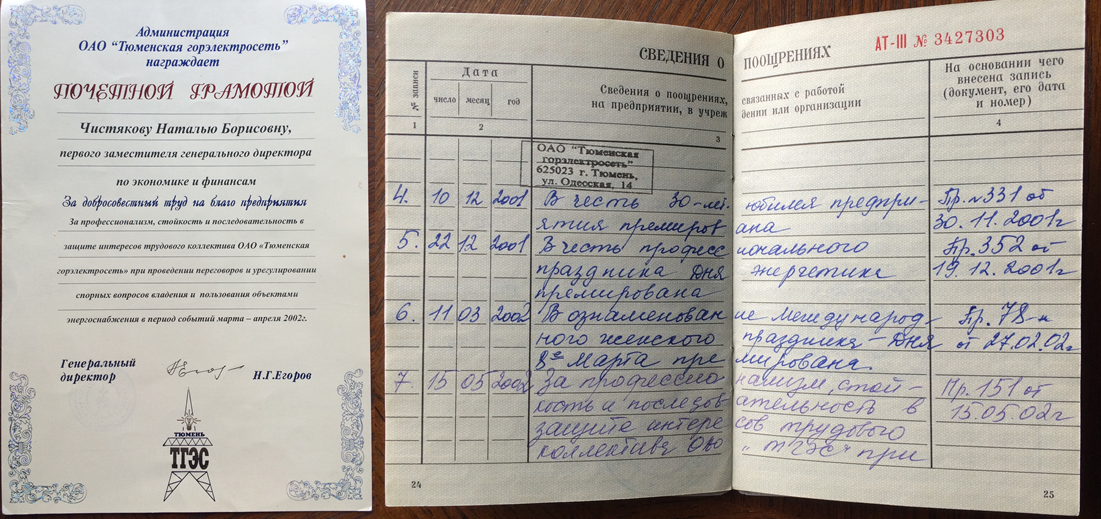 Администрация
ОАО "Тюменская горэлектросеть"
награждает
ПОЧЕТНОЙ ГРАМОТОЙ
Чистякову Наталью Борисовну,
первого заместителя генерального директора
по экономике и финансам
За добросовестный труд на благо предприятия
За профессионализм, стойкость и последовательность в
защите интересов трудового коллектива ОАО «Тюменская
горэлектросеть» при проведении переговоров и урегулировании
спорных вопросов владения и пользования объектами
энергоснабжения в период событий марта – апреля 2002г.
Генеральный
директор
Н.Г.Егоров
ТЮМЕНЬ
ТГЭС
СВЕДЕНИЯ О ПООЩРЕНИЯХ
АТ-III № 3427303
№ записи
Дата
число месяц год
Сведения о поощрениях, связанных с работой
на предприятии, в учреждении или организации
На основании чего
внесена запись
(документ, его дата
и номер)
1 2 3 4
ОАО "Тюменская
горэлектросеть"
625023 г. Тюмень,
ул. Одесская, 14
4. 10 12 2001 В честь 30-лет юбилея предпри- Пр. № 331 от
ятия премирована 30.11.2001г
5. 22 12 2001 В честь профессионального Пр. 352 от
праздника Дня энергетика 19.12.2001г
премирована
6. 11 03 2002 В ознаменование Международ- Пр. 78-к
ного женского праздника – Дня от 27.02.02г
8е Марта премирована.
7. 15 05 2002 За профессионализм, стой- Пр. 151 от
кость и последовательность в 15.05.02г
защите интересов трудового
коллектива ОАО "ТГЭС" при
24
25